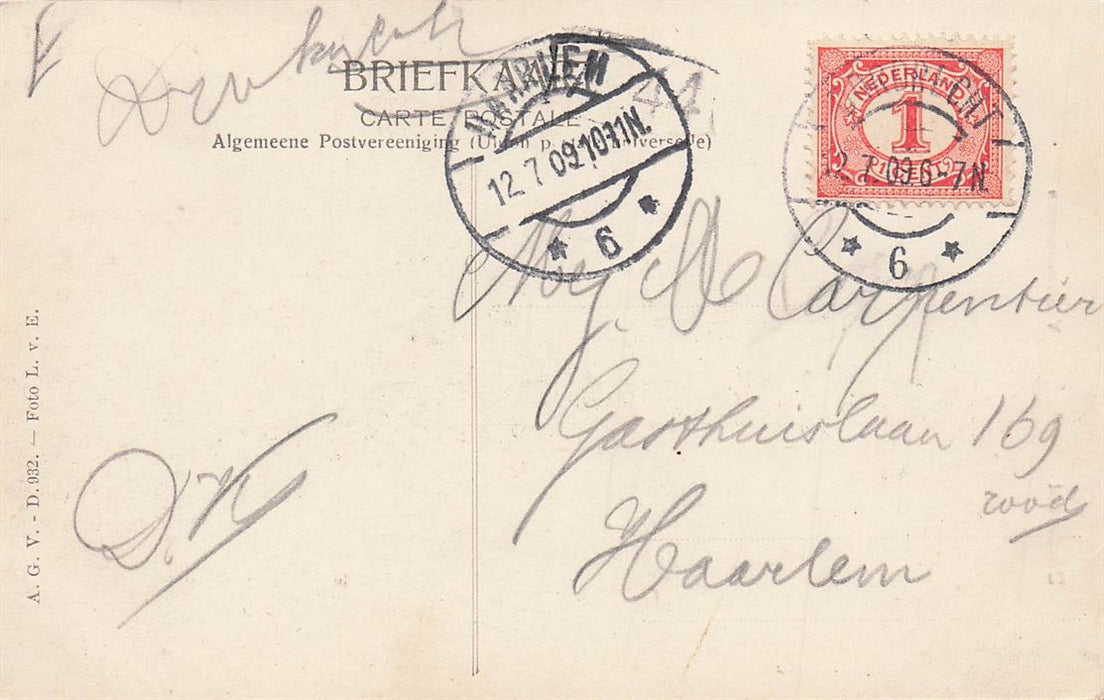 BRIEFKAART
CARTE POSTALE
Algemeene Postvereeniging (Union postale universelle)
12.7.09.10-11N.
6
NEDERLAND
1
1 CENT 1
12.7.09.6-7N.
6
Mej. A Carpentier
Gasthuislaan 169
rood
Haarlem
D.V.
A. G. V. - D. 932. — Foto L. v. E.